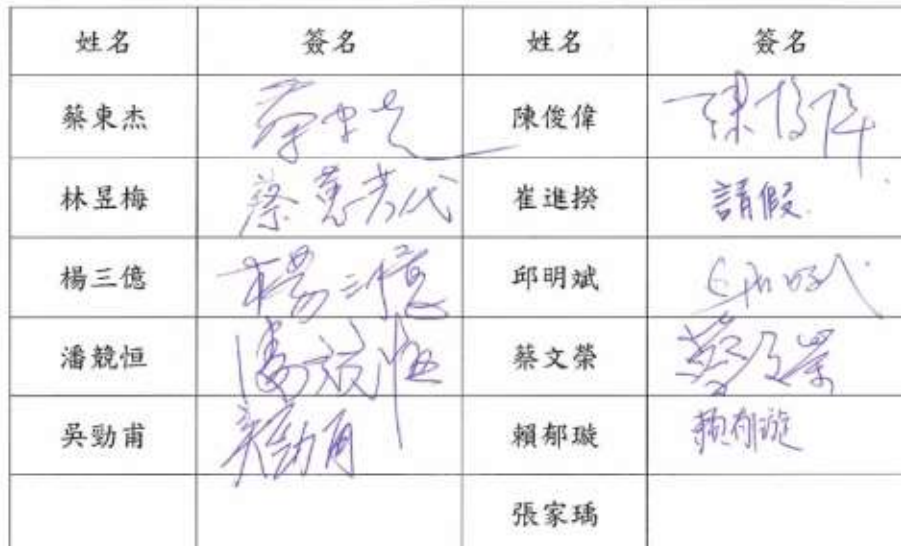 姓名 簽名 姓名 簽名
蔡東杰 陳俊偉 陳俊偉
林昱梅 蔡蕙芳代 崔進揆 請假
楊三億 楊三億 邱明斌
潘競恒 潘競恒 蔡文榮 蔡文榮
吳勁甫 吳勁甫 賴郁璇 賴郁璇
張家瑀